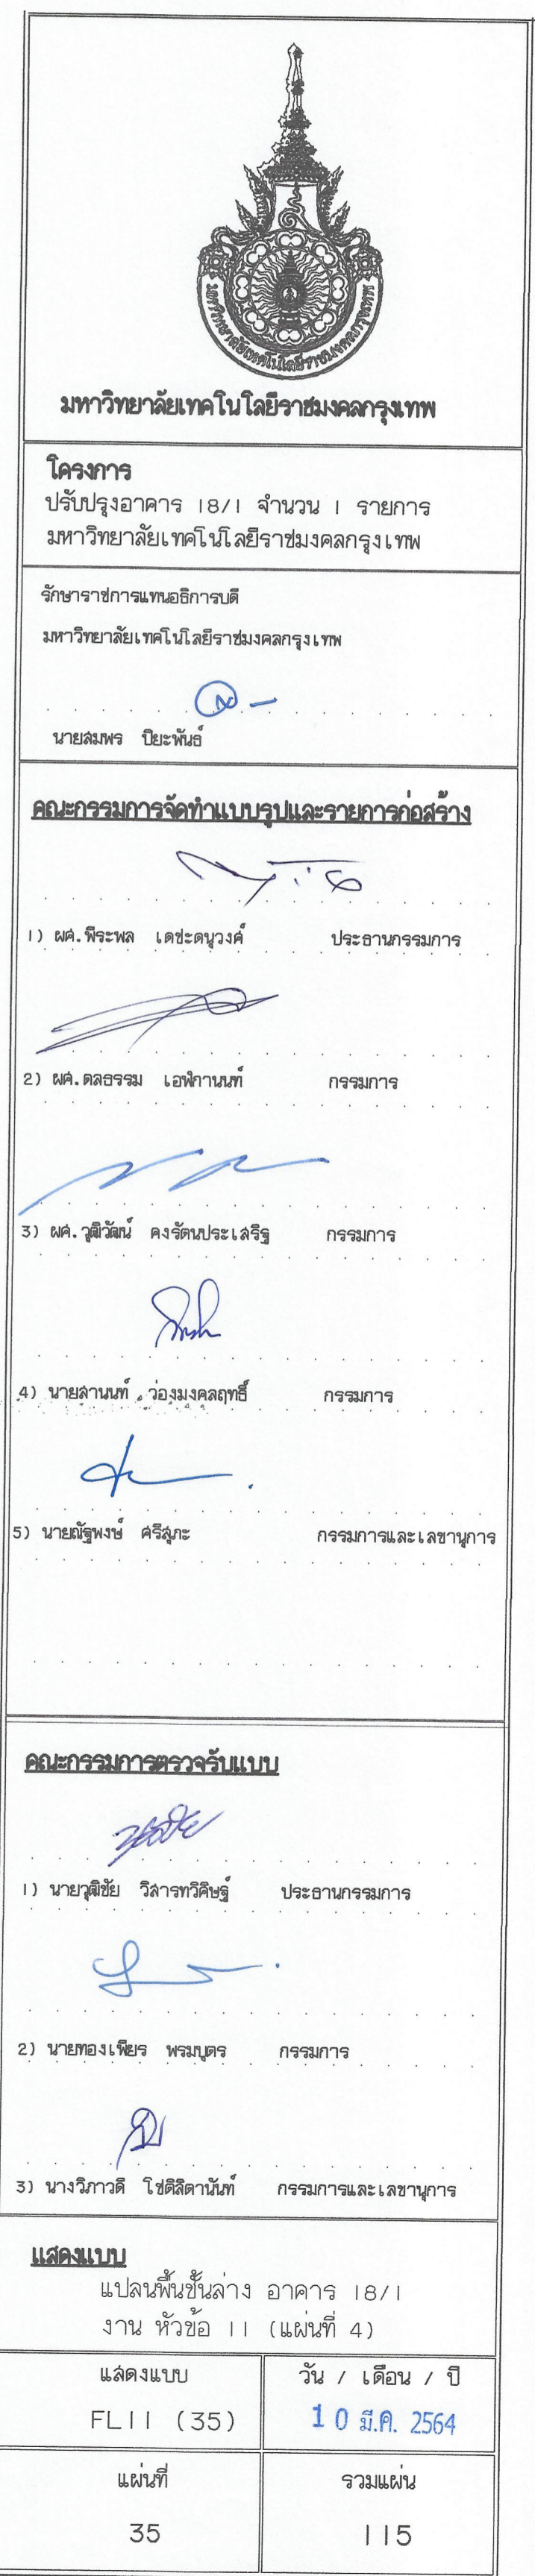 มหาวิทยาลัยเทคโนโลยีราชมงคลกรุงเทพ
มหาวิทยาลัยเทคโนโลยีราชมงคลกรุงเทพ
โครงการ
ปรับปรุงอาคาร 18/1 จำนวน 1 รายการ
มหาวิทยาลัยเทคโนโลยีราชมงคลกรุงเทพ
รักษาราชการแทนอธิการบดี
มหาวิทยาลัยเทคโนโลยีราชมงคลกรุงเทพ
นายสมพร ปิยะพันธ์
คณะกรรมการจัดทำแบบรูปและรายการก่อสร้าง
1) ผศ.พีระพล เดชะดนูวงศ์ ประธานกรรมการ
2) ผศ.ดลธรรม เอฬกานนท์ กรรมการ
3) ผศ.วุฒิวัฒน์ คงรัตนประเสริฐ กรรมการ
4) นายสานนท์ ว่องมงคลฤทธิ์ กรรมการ
5) นายณัฐพงษ์ ศรีสุภะ กรรมการและเลขานุการ
คณะกรรมการตรวจรับแบบ
1) นายวุฒิชัย วิสารทวิศิษฐ์ ประธานกรรมการ
2) นายทองเพียร พรมบุตร กรรมการ
3) นางวิภาวดี โชติลิตานันท์ กรรมการและเลขานุการ
แสดงแบบ
แปลนพื้นชั้นล่าง อาคาร 18/1
งาน หัวข้อ 11 (แผ่นที่ 4)
แสดงแบบ วัน / เดือน / ปี
FL11 (35) 10 มี.ค. 2564
แผ่นที่ รวมแผ่น
35 115